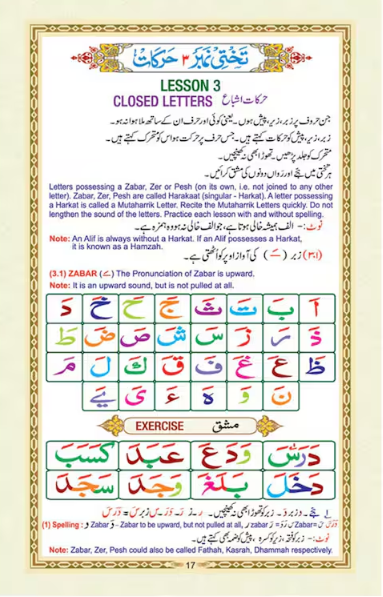 تختی نمبر ۳ حرکات
LESSON 3
CLOSED LETTERS حرکات اشباع
جن حروف پر زبر، زیر، پیش ہوں۔ یعنی کوئی اور حرف ان کے ساتھ ملا ہوا نہ ہو۔
زبر، زیر، پیش کو حرکات کہتے ہیں۔ جس حرف پر حرکت ہو اس کو متحرک کہتے ہیں۔
متحرک کو جلد پڑھیں۔ تھوڑا بھی نہ کھینچیں۔
ہر تختی میں ہجے اور رواں دونوں کی مشق کرائیں۔
Letters possessing a Zabar, Zer or Pesh (on its own, i.e. not joined to any other
letter). Zabar, Zer, Pesh are called Harakaat (singular - Harkat). A letter possessing
a Harkat is called a Mutaharrik Letter. Recite the Mutaharrik Letters quickly. Do not
lengthen the sound of the letters. Practice each lesson with and without spelling.
نوٹ:- الف ہمیشہ خالی ہوتا ہے، جو الف خالی نہ ہو وہ ہمزہ ہے۔
Note: An Alif is always without a Harkat. If an Alif possesses a Harkat,
it is known as a Hamzah.
(۳.۱) زبر (ــَـ) کی آواز اوپر کو اُٹھتی ہے۔
(3.1) ZABAR (ــَـ) The Pronunciation of Zabar is upward.
Note: It is an upward sound, but is not pulled at all.
اَ بَ تَ ثَ جَ حَ خَ دَ
ذَ رَ زَ سَ شَ صَ ضَ طَ
ظَ عَ غَ فَ قَ كَ لَ مَ
نَ وَ هَ ءَ یَ یَے
EXERCISE مشق
دَرَسَ وَدَعَ عَبَدَ كَسَبَ
دَخَلَ بَلَغَ وَجَدَ سَجَدَ
(1) Spelling : و Zabar وَ - Zabar to be upward, but not pulled at all, ر zabar رَ = وَرَ س Zabar سَ = وَرَسَ
Note: Zabar, Zer, Pesh could also be called Fathah, Kasrah, Dhammah respectively.
17